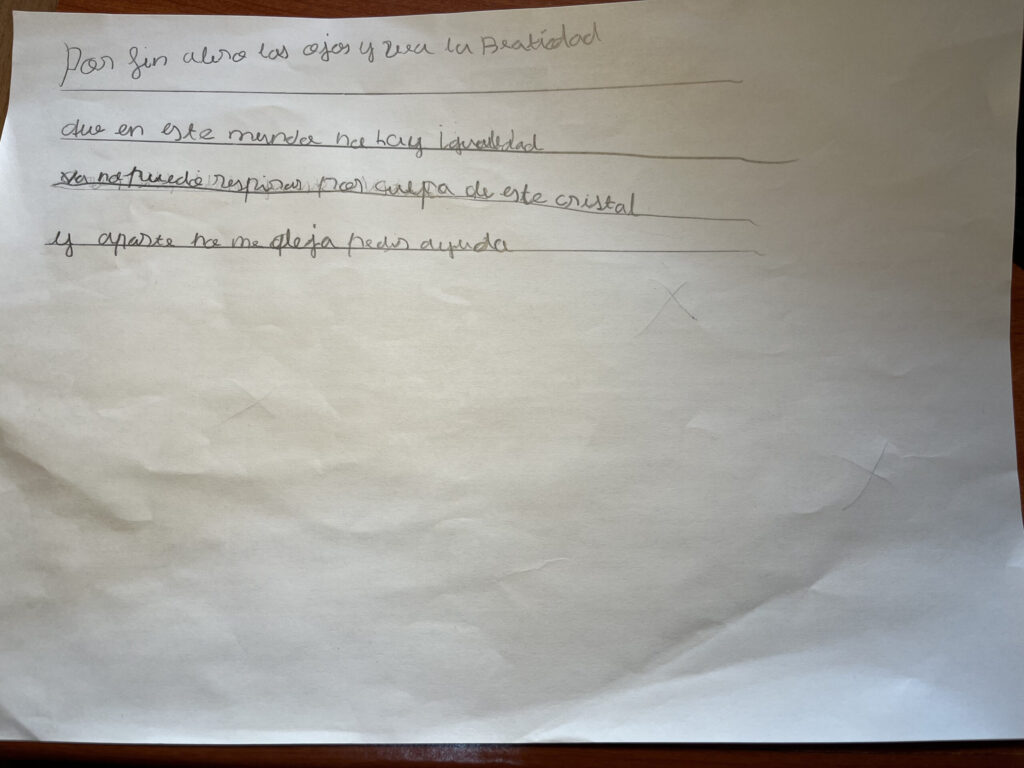 Por fin abro los ojos y vea la Beatidad
que en este mundo no hay igualdad
ya no puedo respirar por culpa de este cristal
y aparte no me deja pedir ayuda